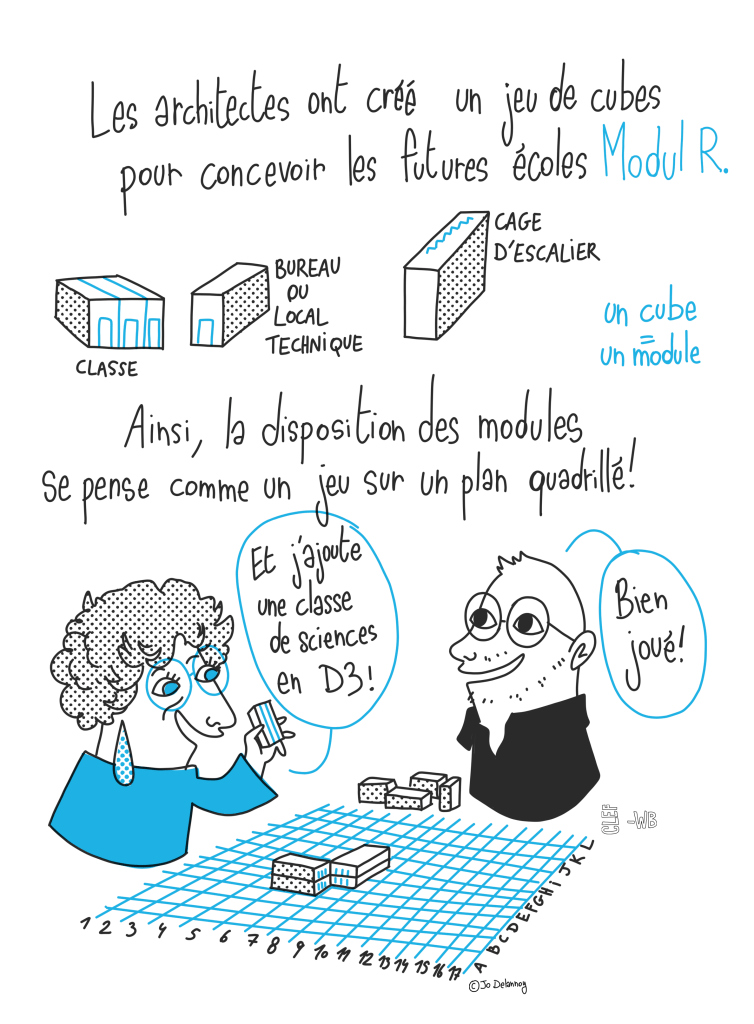 Les architectes ont créé un jeu de cubes
pour concevoir les futures écoles Modul R.
CAGE
D'ESCALIER
BUREAU
OU
LOCAL
TECHNIQUE
CLASSE
un cube
=
un module
Ainsi, la disposition des modules
se pense comme un jeu sur un plan quadrillé!
Et j'ajoute
une classe
de sciences
en D3!
Bien
joué!
CLEF
-WB
1 2 3 4 5 6 7 8 9 10 11 12 13 14 15 16 17
A B C D E F G H i J K L
© Jo Delannoy